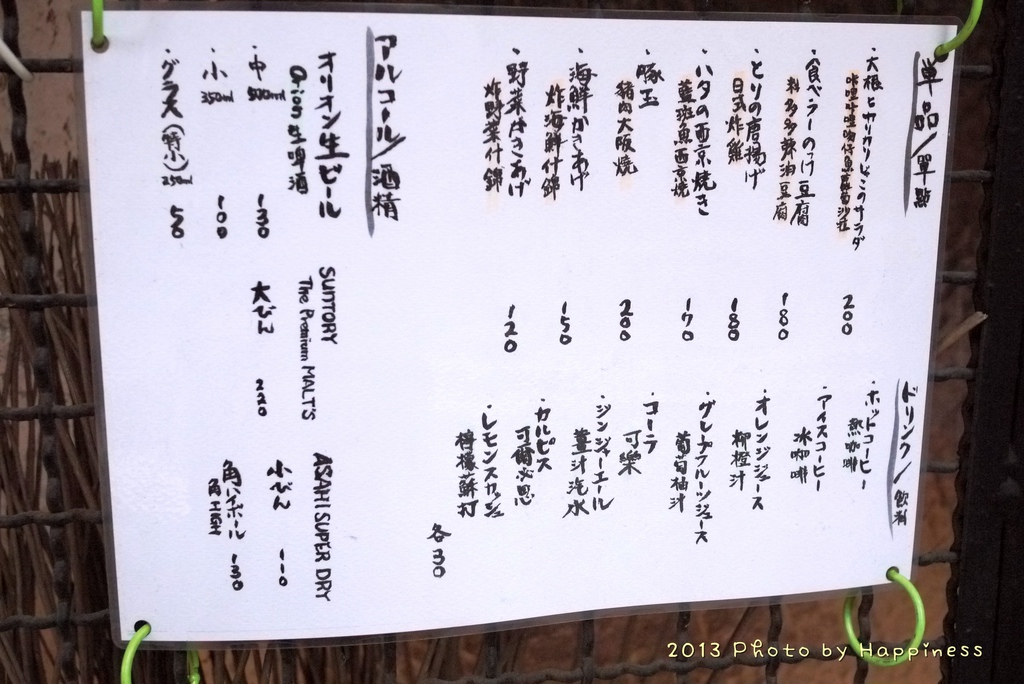 単品/單點
・大根とカリカリじゃこのサラダ
200
・食べラーのっけ豆腐
料多多辣油豆腐
180
・とりの唐揚げ
日式炸雞
180
・ハタの西京焼き
藍斑魚西京燒
170
・豚玉
豬肉大阪燒
200
・海鮮かきあげ
炸海鮮什錦
150
・野菜かきあげ
炸野菜什錦
120
ドリンク/飲料
・ホットコーヒー
熱咖啡
・アイスコーヒー
冰咖啡
・オレンジジュース
柳橙汁
・グレープフルーツジュース
葡萄柚汁
・コーラ
可樂
・ジンジャーエール
薑汁汽水
・カルピス
可爾必思
・レモンスカッシュ
檸檬蘇打
各30
アルコール/酒精
オリオン生ビール
Orion生啤酒
・中 500ml 130
・小 350ml 100
・グラス(特小) 250ml 50
SUNTORY
The Premium MALT'S
大びん 220
ASAHI SUPER DRY
小びん 110
角ハイボール 130
角HIGH
2013 Photo by Happiness